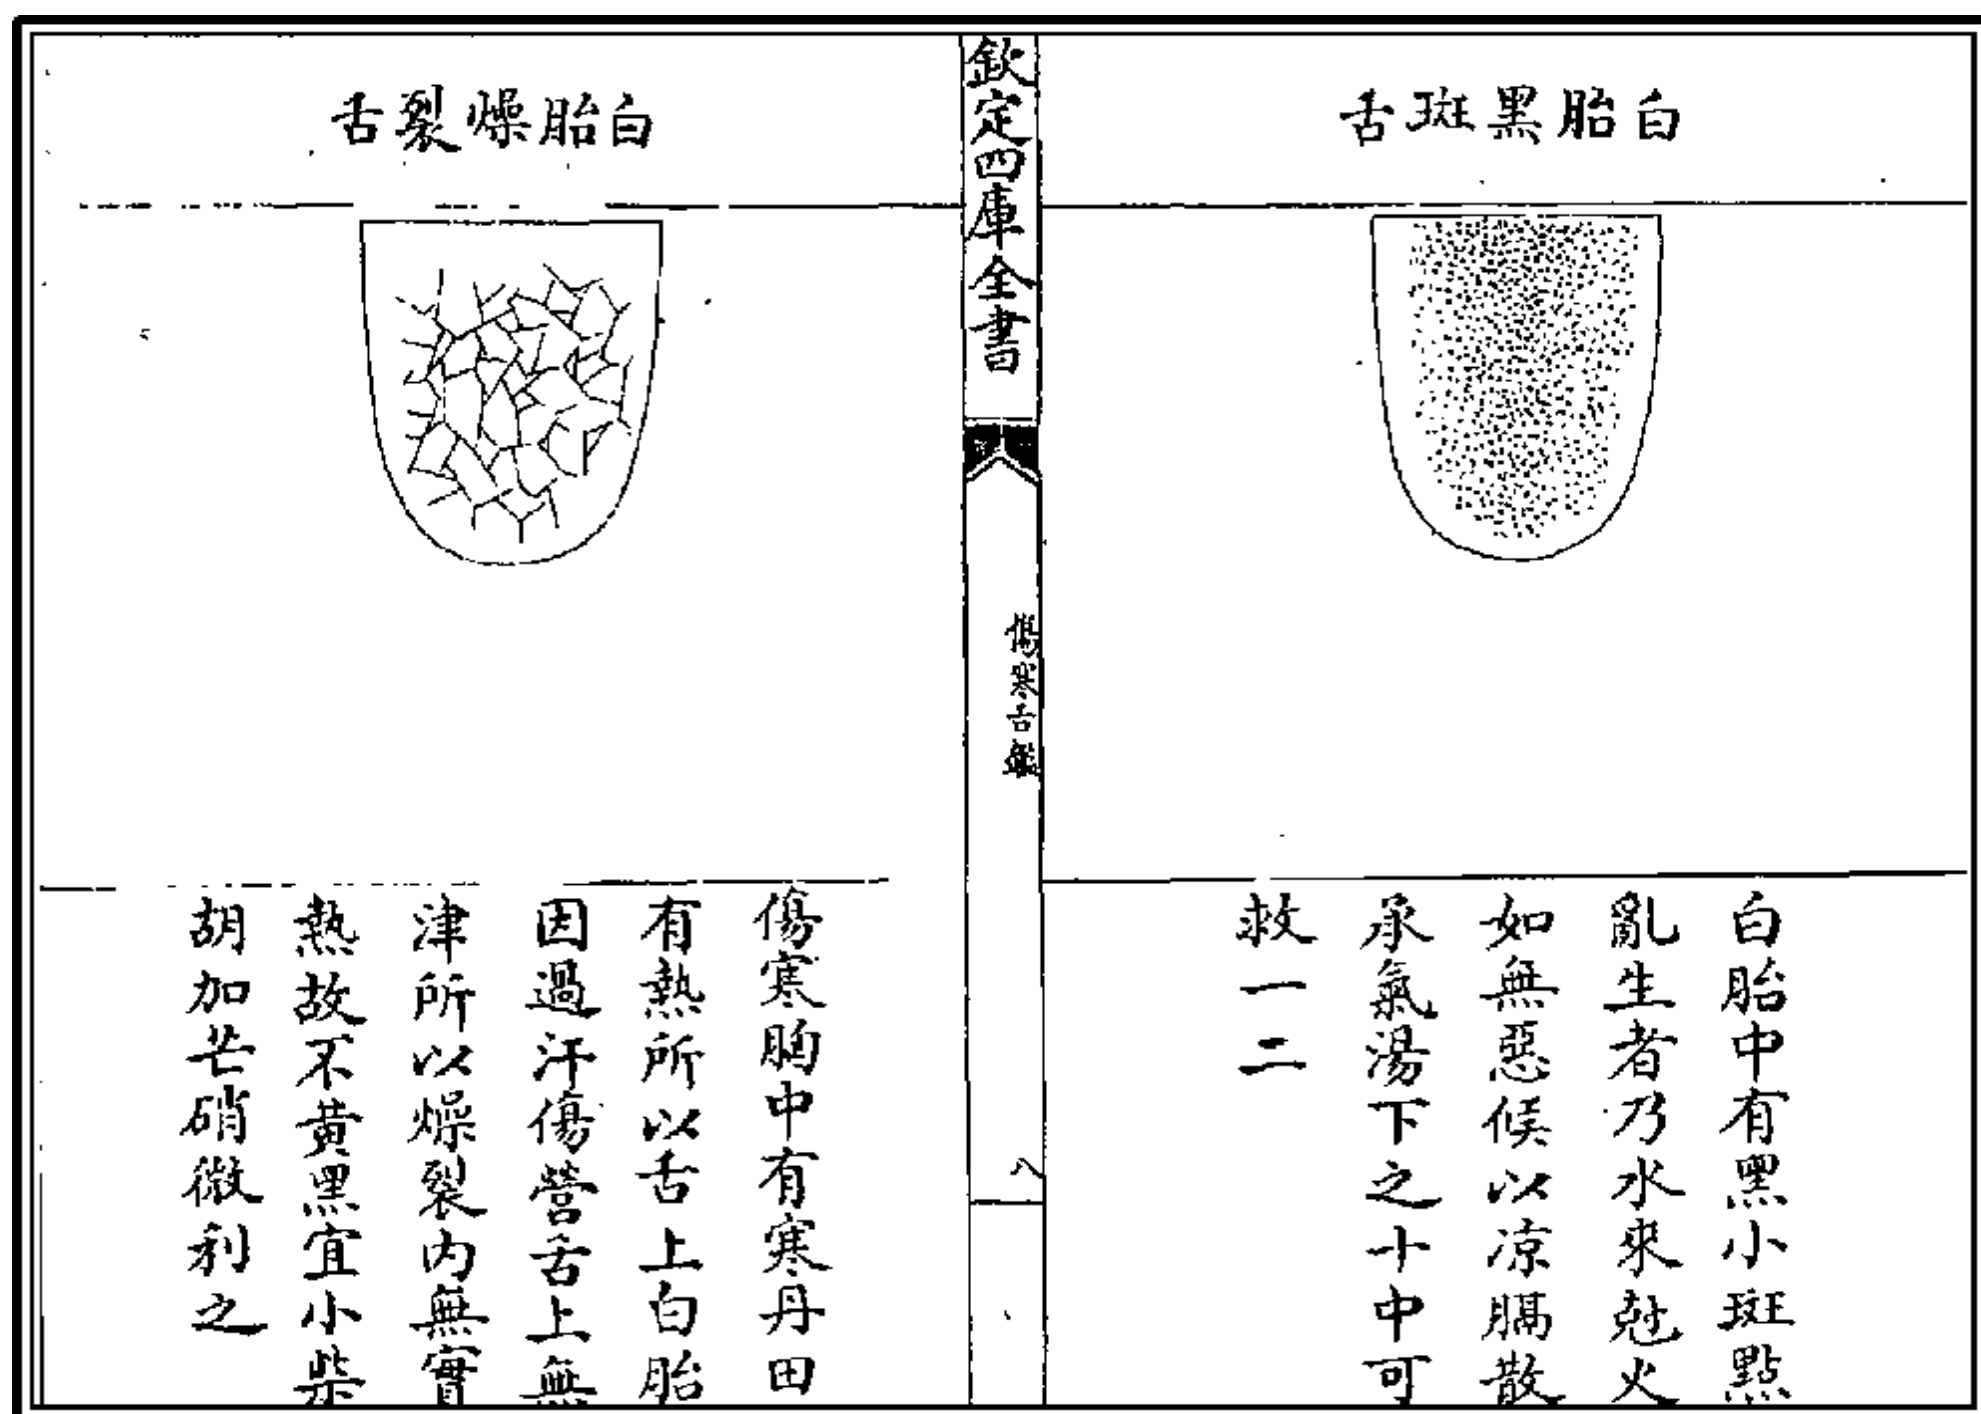 白胎黑斑舌
白胎中有黑小斑點
亂生者乃水來尅火
如無惡候以凉膈散
承氣湯下之十中可
救一二
欽定四庫全書
傷寒舌鑑
八
白胎燥裂舌
傷寒胸中有寒丹田
有熱所以舌上白胎
因過汗傷營舌上無
津所以燥裂内無實
熱故不黄黑宜小柴
胡加芒硝微利之